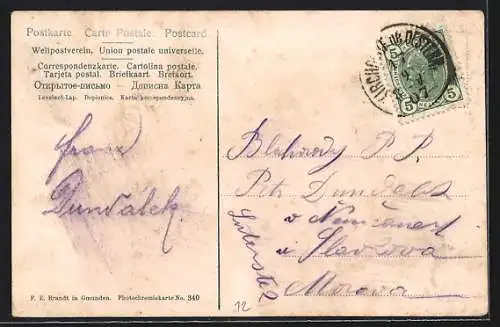 Postkarte Carte Postale. Postcard
Weltpostverein. Union postale universelle.
Correspondenzkarte. Cartolina postale.
Tarjeta postal. Briefkaart. Bretkort.
Открытое-письмо — Дописна Карта
Levelező-Lap. Dopisnice. Karta korespondencyjna.
Franz
Dundálek
Blahorody P. P.
Petr Dundálek
v
u Slavkova
Morava
5
5 5
F. E. Brandt in Gmunden. Photochromiekarte No. 340
12